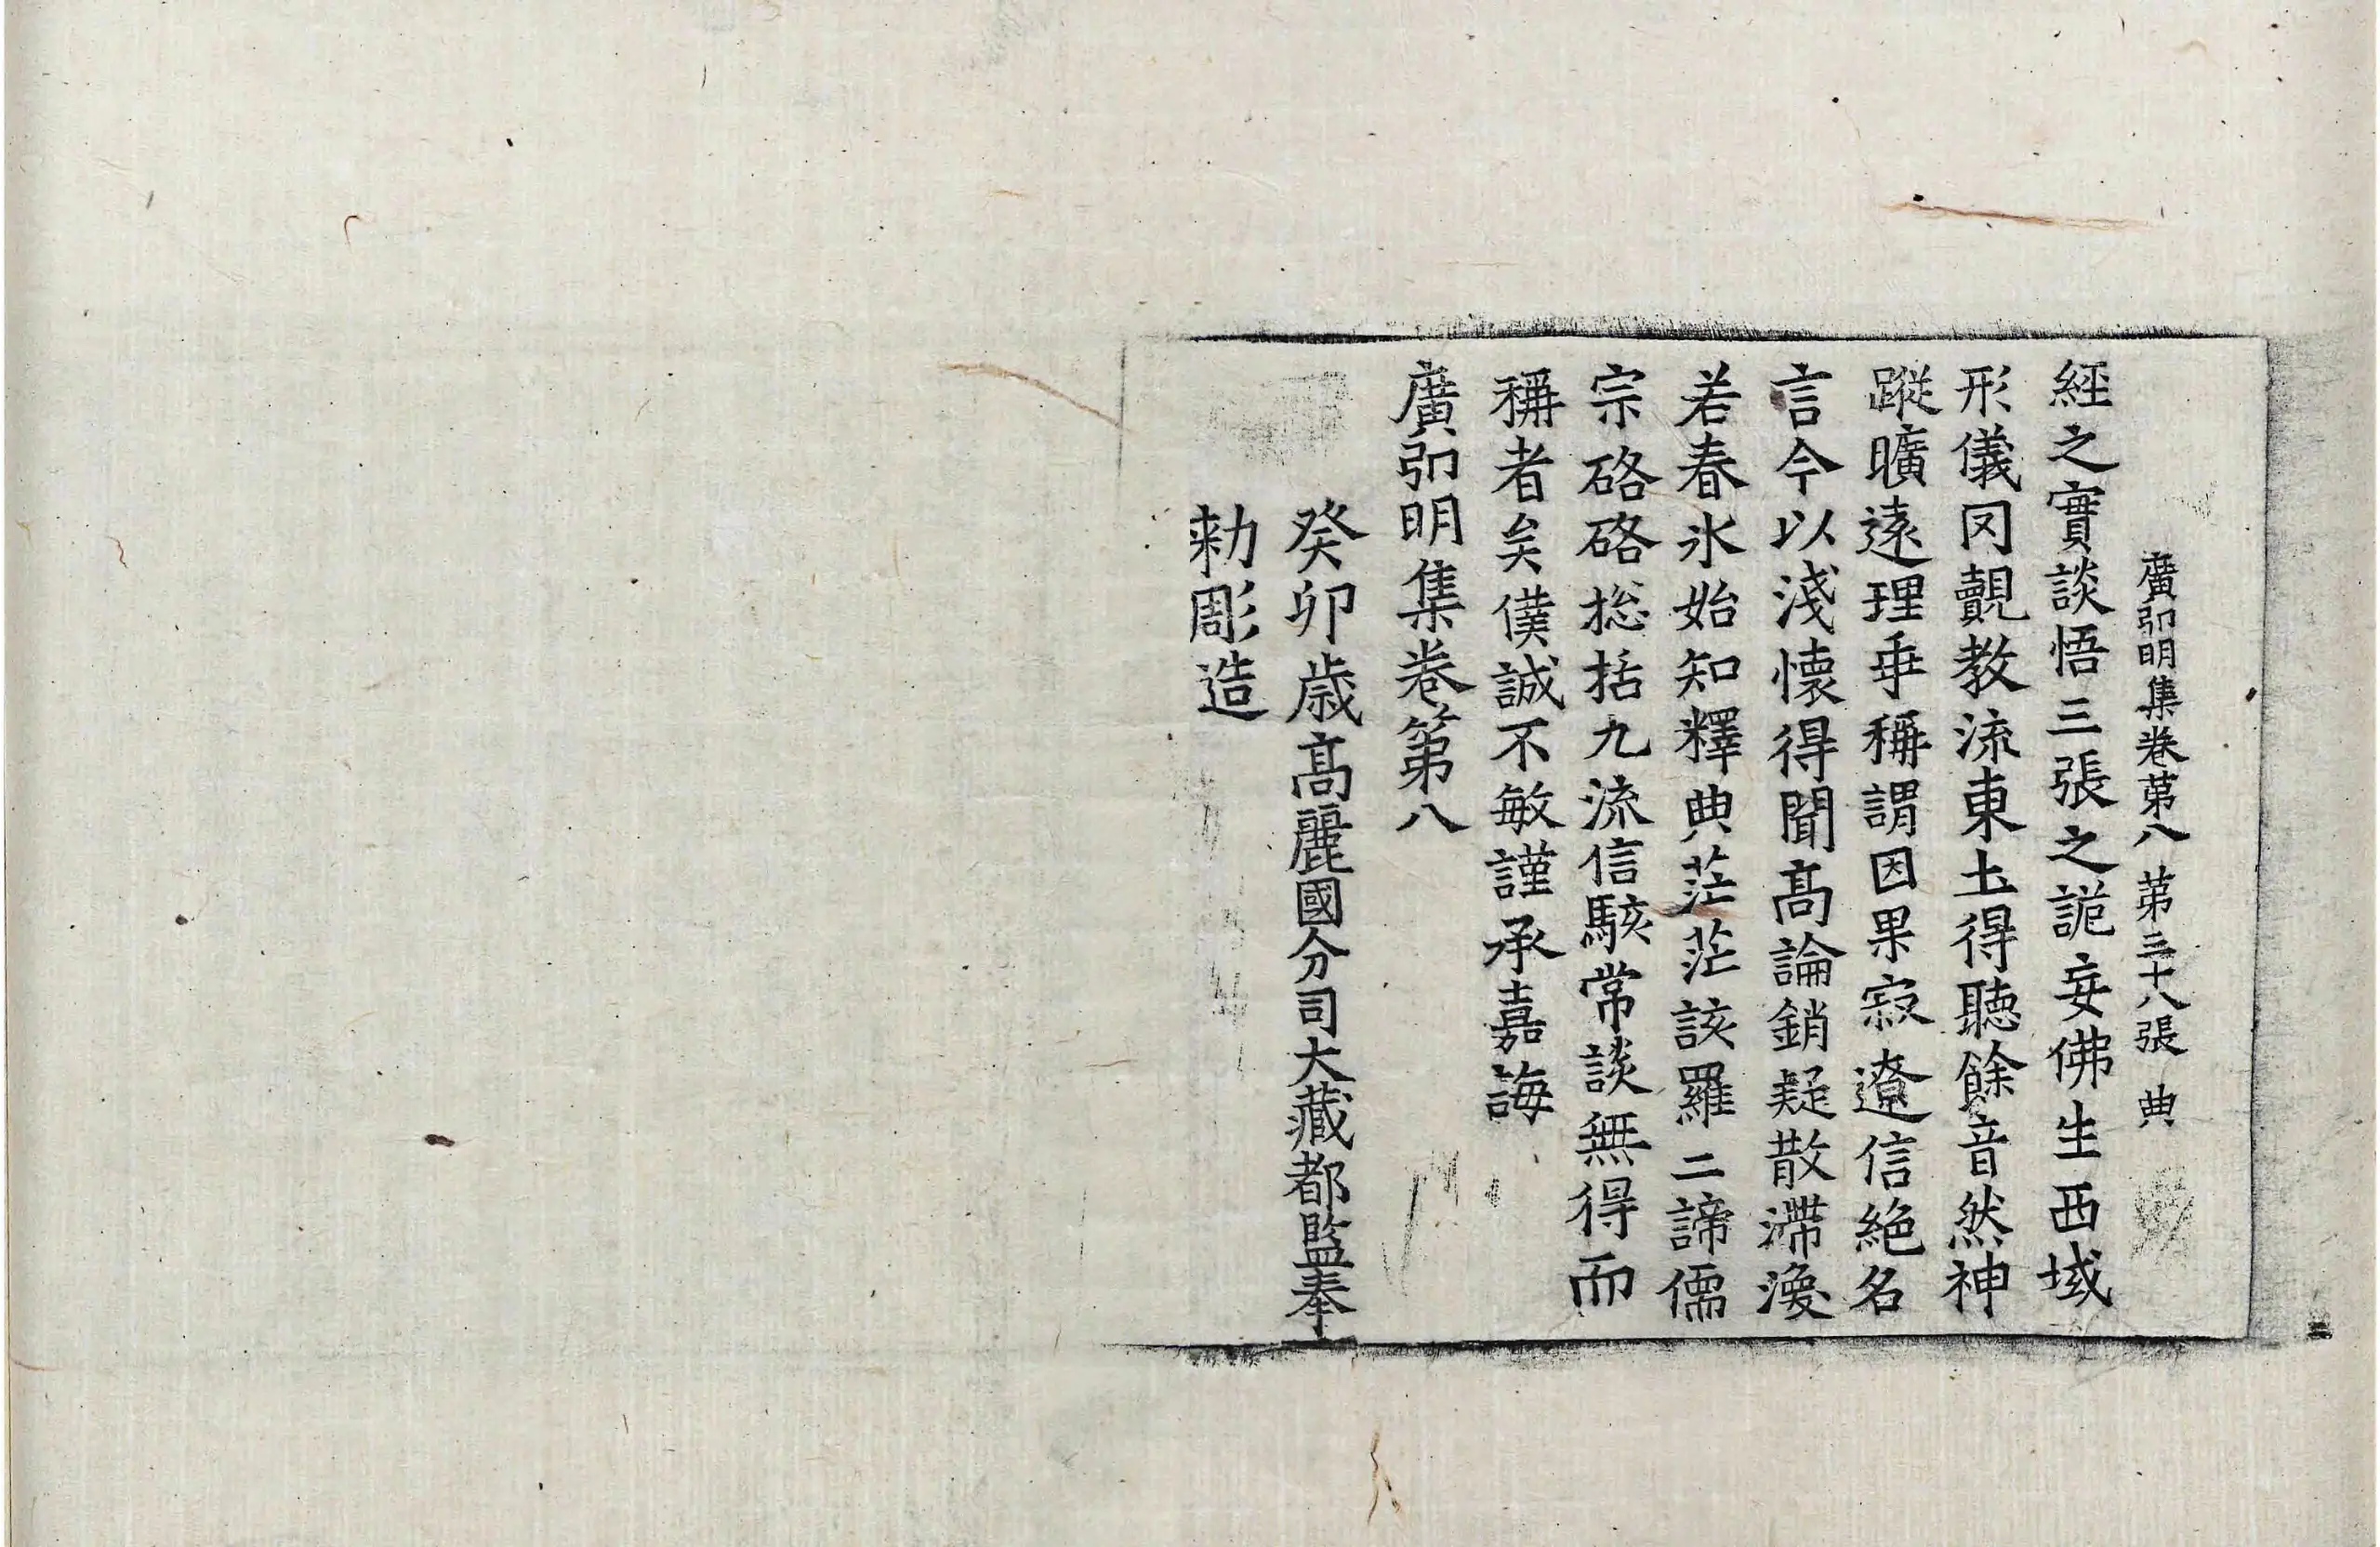 廣弘明集卷苐八 苐三十八張 典
經之實談悟三張之詭妄佛生西域
形儀罔覿教流東土得聽餘音然神
蹤曠遠理乖稱謂因果寂遼信絶名
言今以淺懷得聞髙論銷疑散滯渙
若春氷始知釋典茫茫該羅二諦儒
宗硌硌捴括九流信駭常談無得而
稱者矣僕誠不敏謹承嘉誨
廣弘明集卷第八
癸卯歳髙麗國分司大藏都監奉
勑彫造